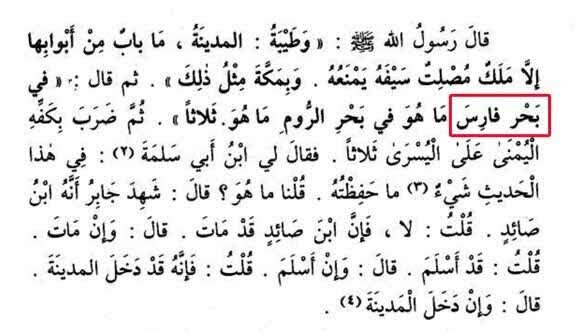 قالَ رَسُولُ الله ﷺ : « وَطَيْبَةُ : المدينَةُ ، مَا بابٌ مِنْ أَبْوابِها
إلَّا مَلَكٌ مُصْلِتٌ سَيْفَهُ يَمْنَعُهُ . وَبِمَكَّةَ مِثْلُ ذٰلِكَ » . ثم قال : « في
بَحْر فارِسَ مَا هُوَ في بَحْرِ الرُّومِ مَا هُوَ . ثَلاثاً » . ثُمَّ ضَرَبَ بِكَفِّهِ
الْيُمْنَى عَلَىٰ الْيُسْرَى ثَلاثاً . فقال لي ابْنُ أبي سَلمَةَ (٢) : فِي هٰذا
الْحَديثِ شَيْءٌ (٣) ما حَفِظْتُهُ . قُلْنا ما هُوَ ؟ قالَ : شَهِدَ جَابِرُ أَنَّهُ ابْنُ
صَائِدٍ . قُلْتُ : لا ، فَإِنَّ ابْنَ صَائِدٍ قَدْ مَاتَ . قالَ : وَإنْ مَاتَ .
قُلْتُ : قَدْ أَسْلَمَ . قالَ : وَإنْ أَسْلَمَ . قُلْتُ : فَإِنَّهُ قَدْ دَخَلَ المدينَةَ .
قالَ : وَإنْ دَخَلَ الْمَدينَةَ (٤) .